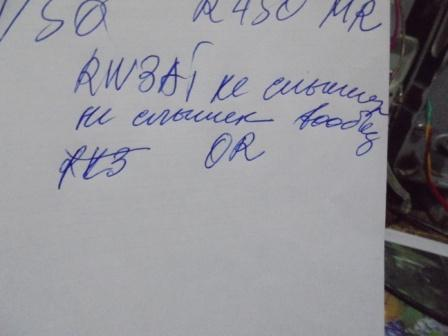 /SQ R450 MR
RW3AI не слышен
не слышен вообще
OR